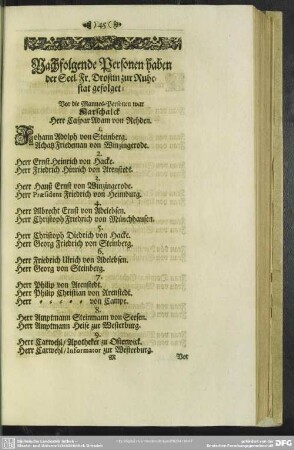 45
Nachfolgende Personen haben
der Seel. Fr. Drostin zur Ruhe-
stat gefolget:
Vor die Mannes-Personen war
Marschalck
Herr Caspar Adam von Rehden.
1.
Johann Adolph von Steinberg.
Achatz Friedeman von Wintzingerode.
2.
Herr Ernst Heinrich von Hacke.
Herr Friedrich Hinrich von Arenstedt.
3.
Herr Hanß Ernst von Wintzingerode.
Herr Præsident Friedrich von Heimburg.
4.
Herr Albrecht Ernst von Adelebsen.
Herr Christoph Friedrich von Münchhausen.
5.
Herr Christoph Diedrich von Hacke.
Herr Georg Friedrich von Steinberg.
6.
Herr Friedrich Ulrich von Adelebsen.
Herr Georg von Steinberg.
7.
Herr Philip von Arenstedt.
Herr Philip Christian von Arenstedt.
Herr - - - - - von Campe.
8.
Herr Amptmann Steinmann von Seesen.
Herr Amptmann Heise zur Westerburg.
9.
Herr Carwehl/ Apotheker zu Osterwick.
Herr Carwehl/ Informator zur Westerburg.
M Vor